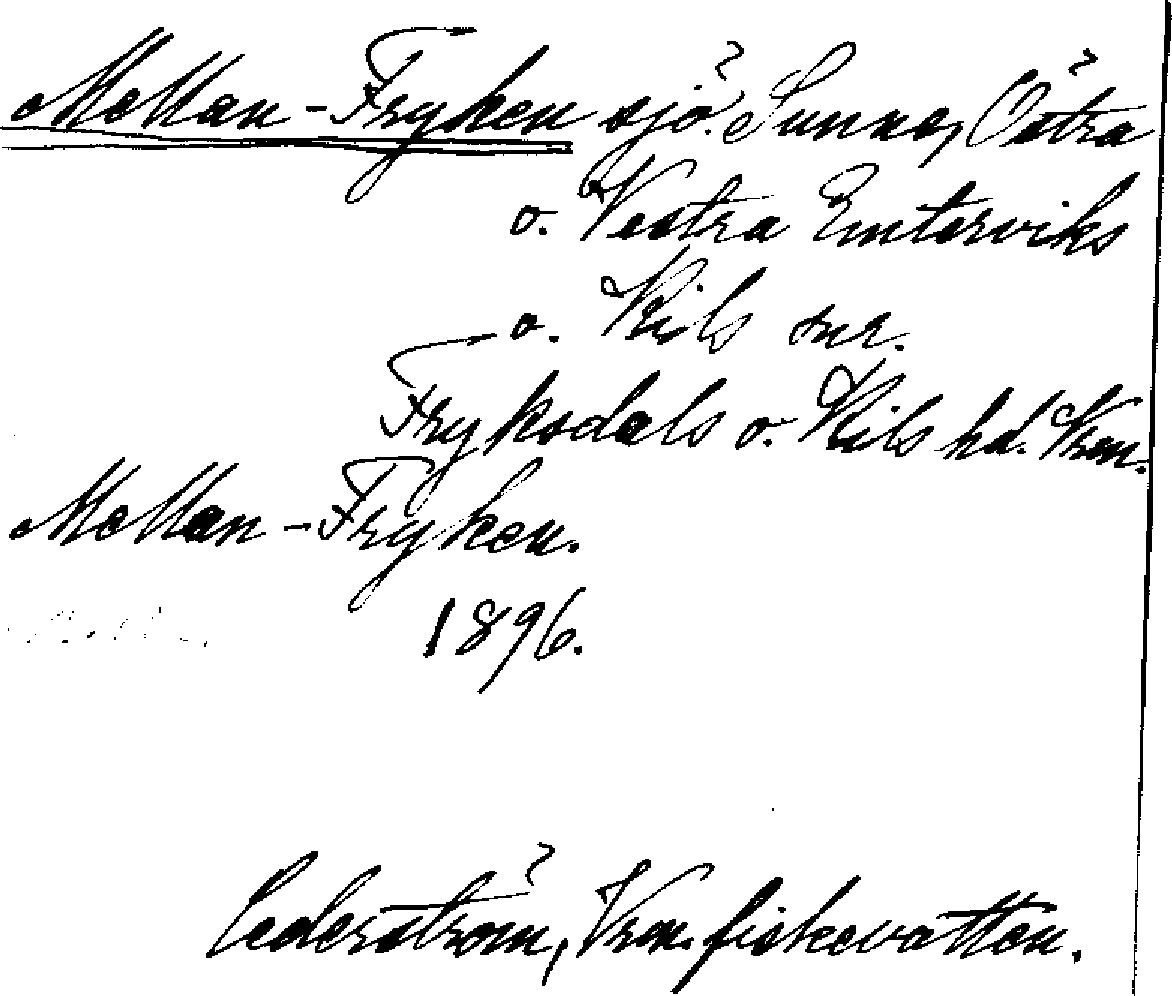 Mellan-Fryken sjö. Sunne, Östra
o. Vestra Emterviks
o. Kils snr.
Fryksdals o. Kils hd. Vrm.
Mellan-Fryken.
1896.
Cederström, Vrm. fiskevatten.